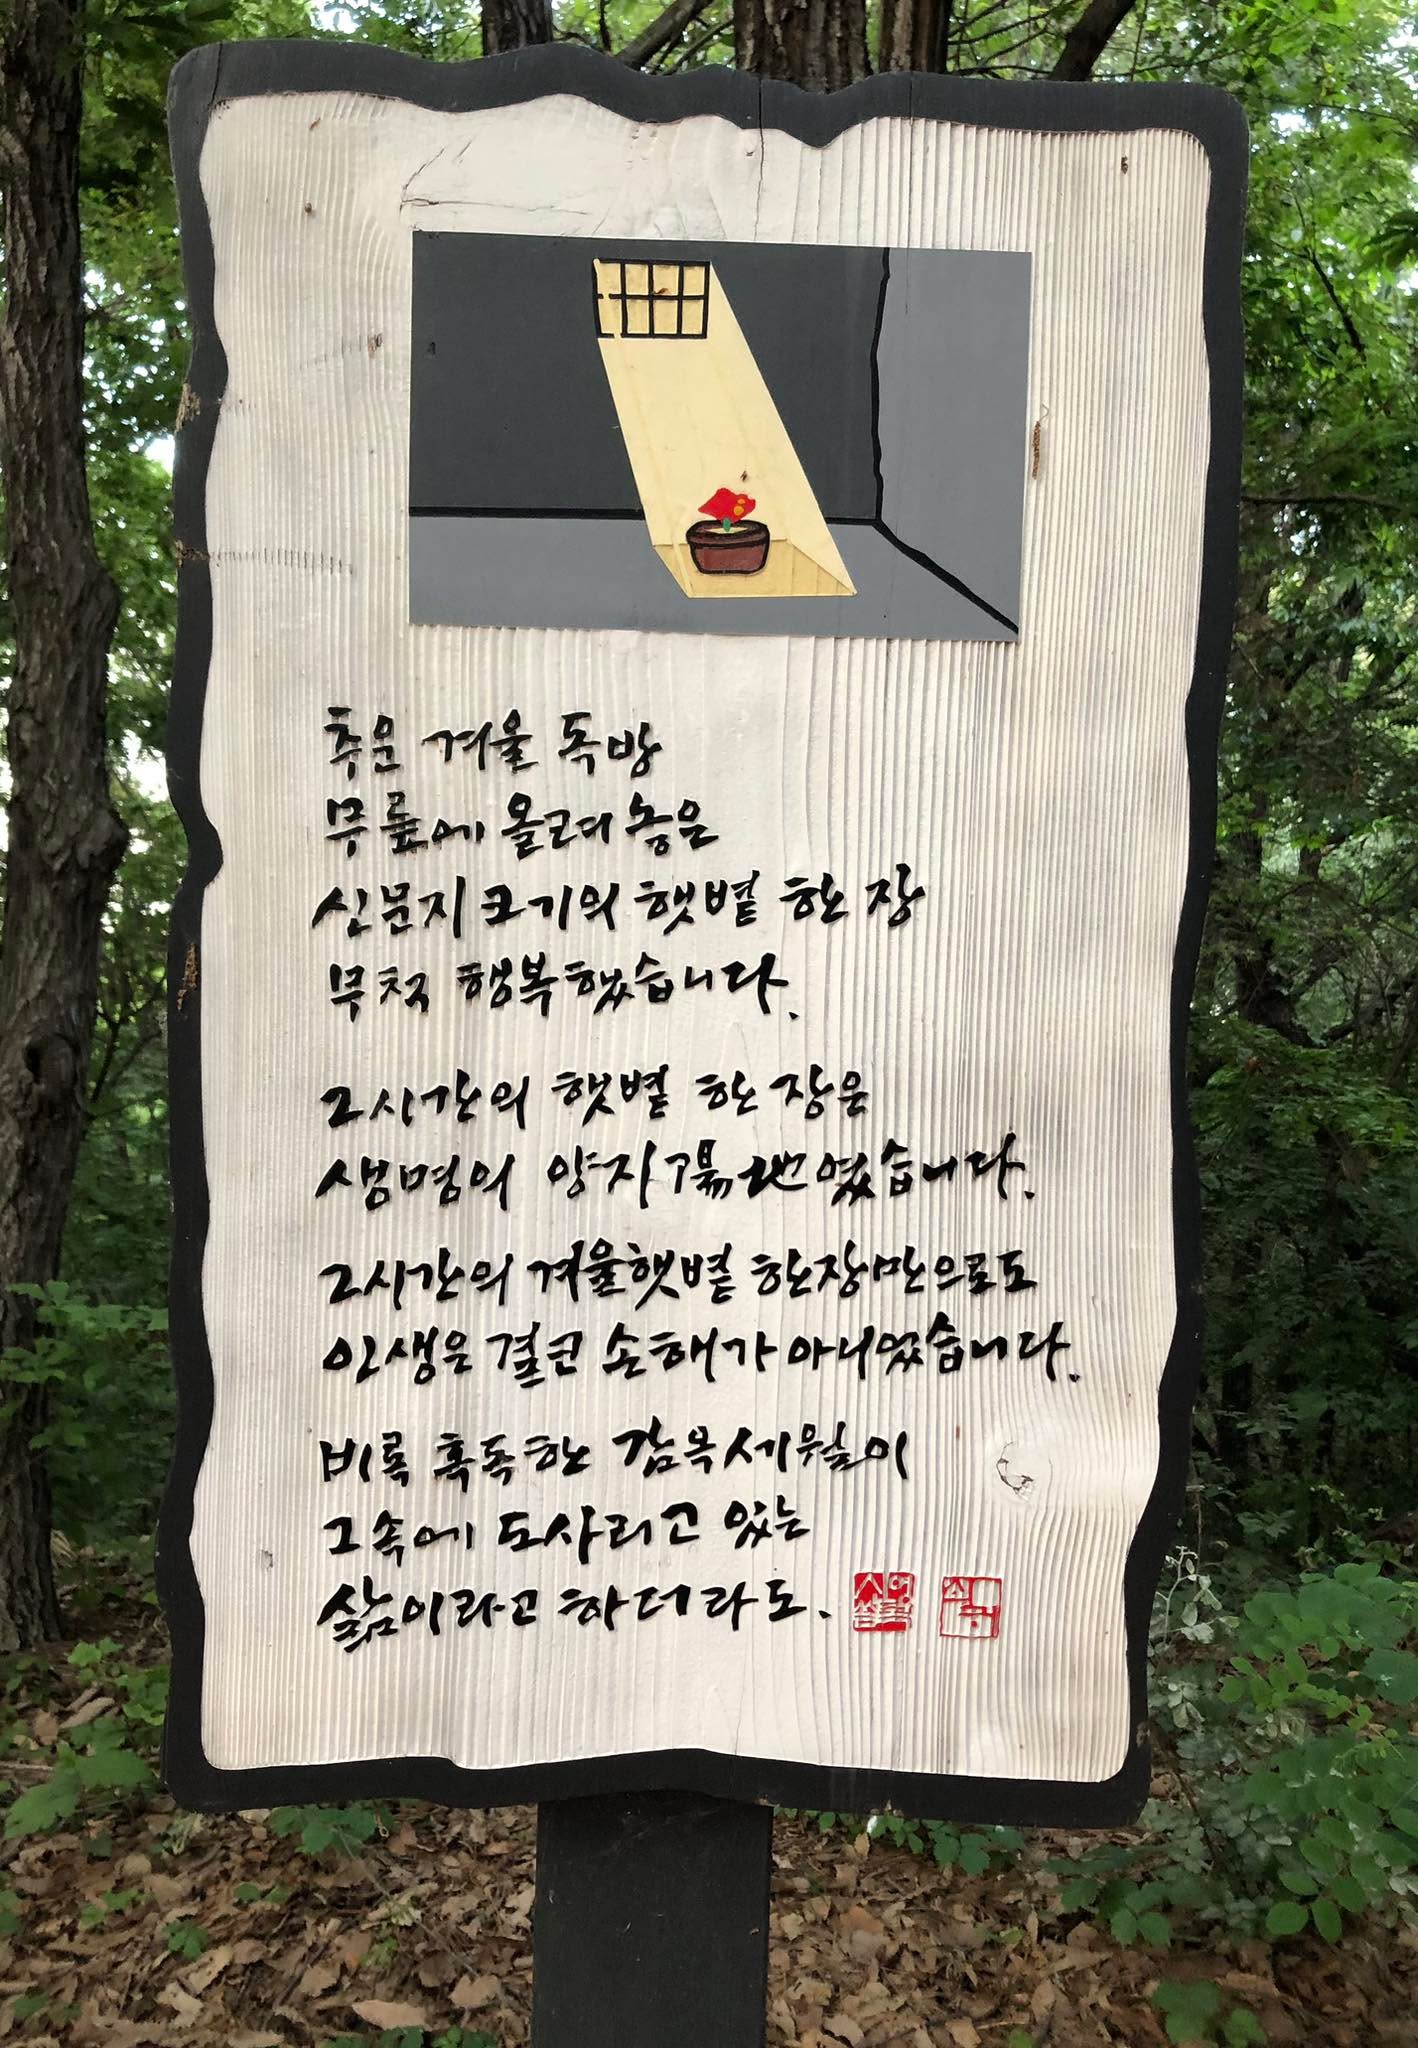 추운 겨울 독방
무릎에 올려 놓은
신문지 크기의 햇볕 한 장
무척 행복했습니다.
2시간의 햇볕 한 장은
생명의 양지陽地였습니다.
2시간의 겨울햇볕 한장만으로도
인생은 결코 손해가 아니었습니다.
비록 혹독한 감옥세월이
그 속에 도사리고 있는
삶이라고 하더라도.